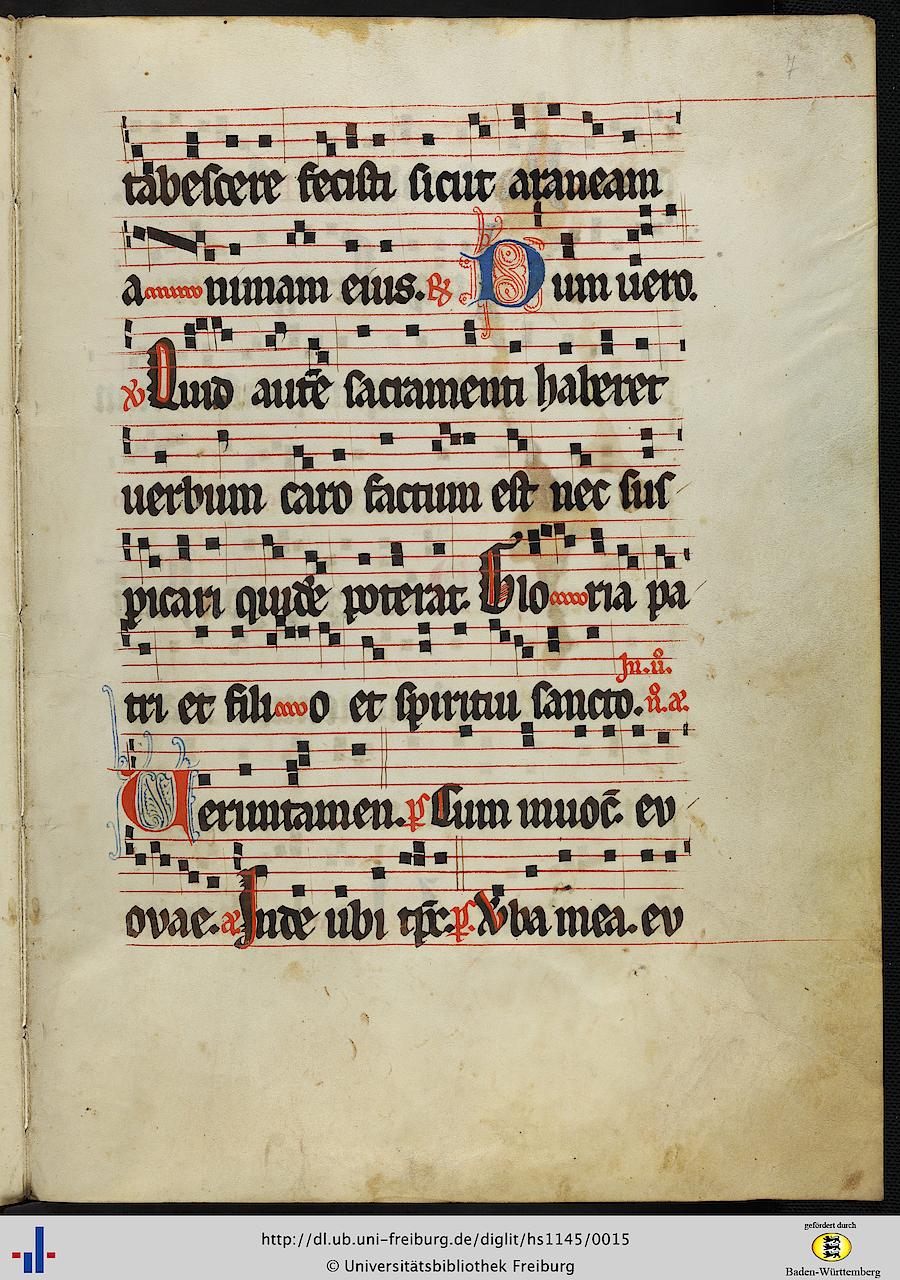 7
tabescere fecisti sicut araneam
a nimam eius. ℟ Dum uero.
℣ Quid autē sacramenti haberet
uerbum caro factum est nec sus
picari quidē poterat. Glo ria pa
tri et fili o et spiritui sancto.
Ueruntamen. p̄ Cum inuoc̄. ev
ovae. a Inde ubi p̄. Vba mea. ev
http://dl.ub.uni-freiburg.de/diglit/hs1145/0015
© Universitätsbibliothek Freiburg
gefördert durch
Baden-Württemberg